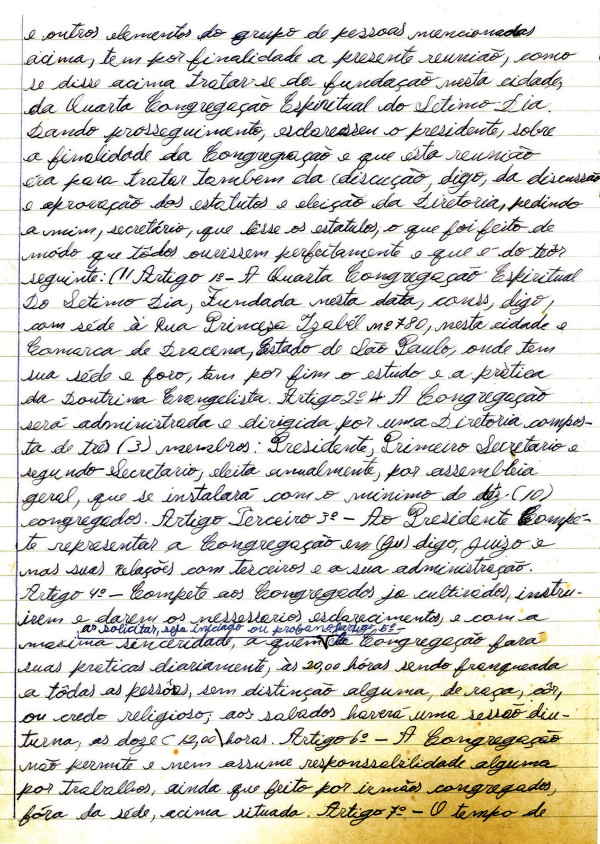 e outros elementos do grupo de pessoas mencionadas
acima, tem por finalidade a presente reunião, como
se disse acima tratar-se da fundação nesta cidade,
da Quarta Congregação Espiritual do Setimo Dia.
Dando prosseguimento, esclaresseu o presidente, sobre
a finalidade da Congregação e que ésta reunião
éra para tratar tambem da (discução, digo, da discussão
e aprovação dos estatutos e eleição da Diretoria, pedindo
a mim, secretário, que lêsse os estatutos, o que foi feito de
módo que tôdos ouvissem perfeitamente e que é do teôr
seguinte: (11 Artigo 1º - A Quarta Congregação Espiritual
Do Setimo Dia, Fundada nesta data, conss, digo,
com séde à Rua Princesa Izabél nº 780, nesta cidade e
Comarca de Dracena, Estado de São Paulo, onde tem
sua séde e foro, tem por fim o estudo e a prática
da Doutrina Evangelista. Artigo 2º 4 A Congregação
será administrada e dirigida por uma Diretoria compos-
ta de três (3) membros: Presidente, Primeiro Secretario e
segundo Secretario, eleita anualmente, por assembleia
geral, que se instalará com o minimo de déz (10)
congregados. Artigo Terceiro 3º - Ao Presidente Compe-
te representar a Congregação em (Ju) digo, Juizo e
nas suas relações com terceiros e a sua administração.
Artigo 4º - Compete aos Congregados ja cultivados, instru-
irem e darem os nessessarios esclarecimentos, e com a
maxima sinceridade, a quem os solicitar, seja iniciado ou 5º - A Congregação fará
suas praticas diariamente, às 20,00 hóras sendo franqueada
a tôdas as pessôas, sem distinção alguma, de raça, côr,
ou credo religioso, aos sabados haverá uma sessão diu-
turna, as doze (12,00) horas. Artigo 6º - A Congregação
não permite e nem assume responssabilidade alguma
por trabalhos, ainda que feito por irmãos congregados,
fóra da séde, acima situada. Artigo 7º - O tempo de